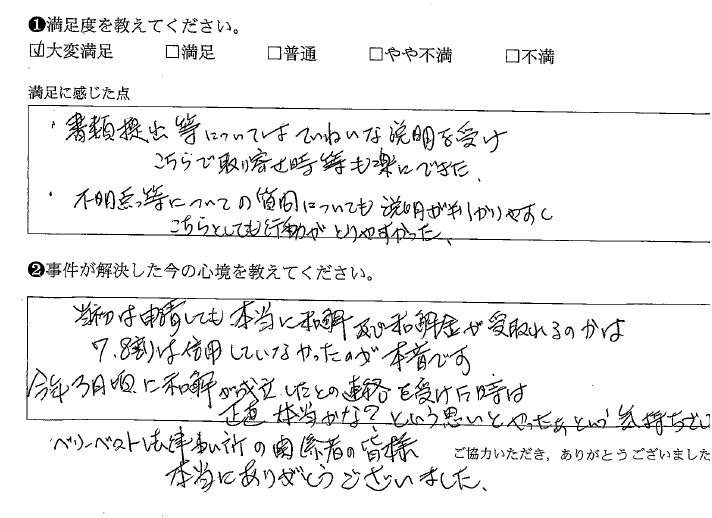 ❶満足度を教えてください。
☑大変満足 □満足 □普通 □やや不満 □不満
満足に感じた点
・書類提出等についてはていねいな説明を受け
こちらで取り寄せ時等も楽にできた。
・不明点等についての質問についても説明が判りやすく
こちらとしても行動がとりやすかった、
❷事件が解決した今の心境を教えてください。
当初は申請しても本当に和解及び和解金が受取れるのかは
7、8割は信用していなかったのが本音です
今年3月頃に和解が成立したとの連絡を受けた時は
正直本当かな?という思いとやったぁという気持ちでし
ベリーベスト法律事ム所の関係者の皆様
ご協力いただき，ありがとうございました
本当にありがとうございました。